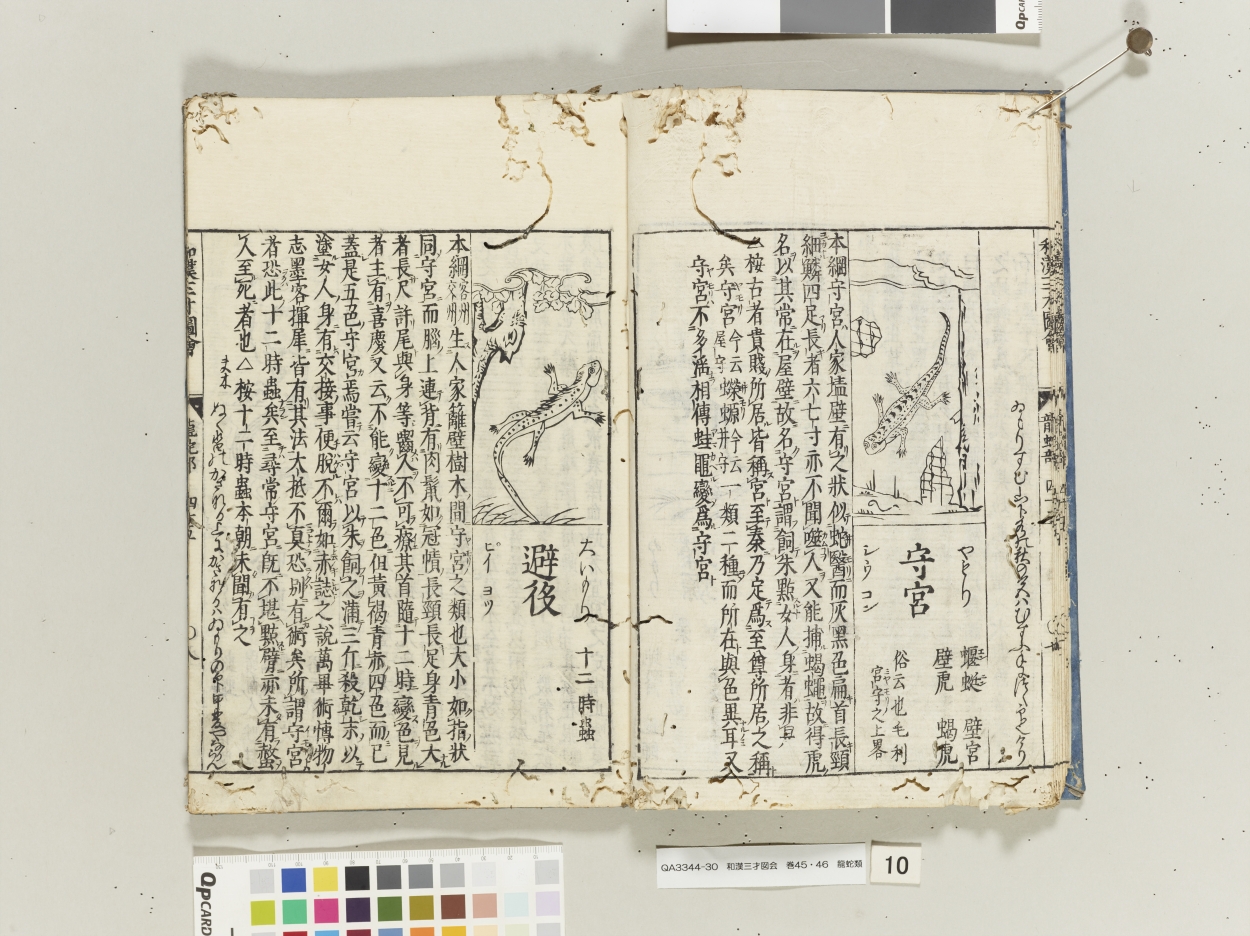 守宮
やもり
シウ コン
蝘蜓 壁宮
壁虎 蝎虎
俗云也毛利
宮守之上畧
本綱守宮人家墻壁有之狀似蛇醫而灰黑色扁首長頸
細鱗四足長者六七寸亦不聞噬人又能捕蝎蠅故得虎
名以其常在屋壁故名守宮謂飼朱㸃女人身者非耳
△桉古者貴賤所居皆稱宮至秦乃定爲至尊所居之稱
矣守宮今云屋守蠑螈今云井守一類二種而所在與色異耳又
守宮不多淫相傳蛙黽變爲守宮
避後
ヒイ ヨウ
十二時蟲
本綱容州交州生人家籬壁樹木間守宮之類也大小如指狀
同守宮而腦上連背有肉鬣如冠幘長頸長足身青色大
者長尺許尾與身等齧人不可療其首隨十二時變色見
者主有喜慶又云不能變十二色但黃褐青赤四色而已
蓋是五色守宮焉嘗云守宮以朱飼之滿三斤殺乾末以
塗女人身有交接事便脫不爾如赤誌之說萬畢術博物
志墨客揮犀皆有其法大抵不真恐別有術矣所謂守宮
者恐此十二時蟲矣至尋常守宮旣不堪㸃臂亦未有螫
人至死者也△桉十二時蟲本朝未聞有之
和漢三才圖會
QpCARD
QpCARD
QA3344-30 和漢三才図会 巻45・46 龍蛇類
10